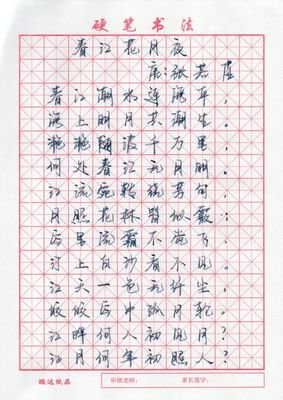 硬笔书法
春江花月夜
唐:张若虚
春江潮水连海平,
海上明月共潮生。
滟滟随波千万里,
何处春江无月明。
江流宛转绕芳甸,
月照花林皆似霰;
空里流霜不觉飞,
汀上白沙看不见。
江天一色无纤尘,
皎皎空中孤月轮。
江畔何人初见月?
江月何年初照人?
鹏达纸品 审批老师: 家长签字: